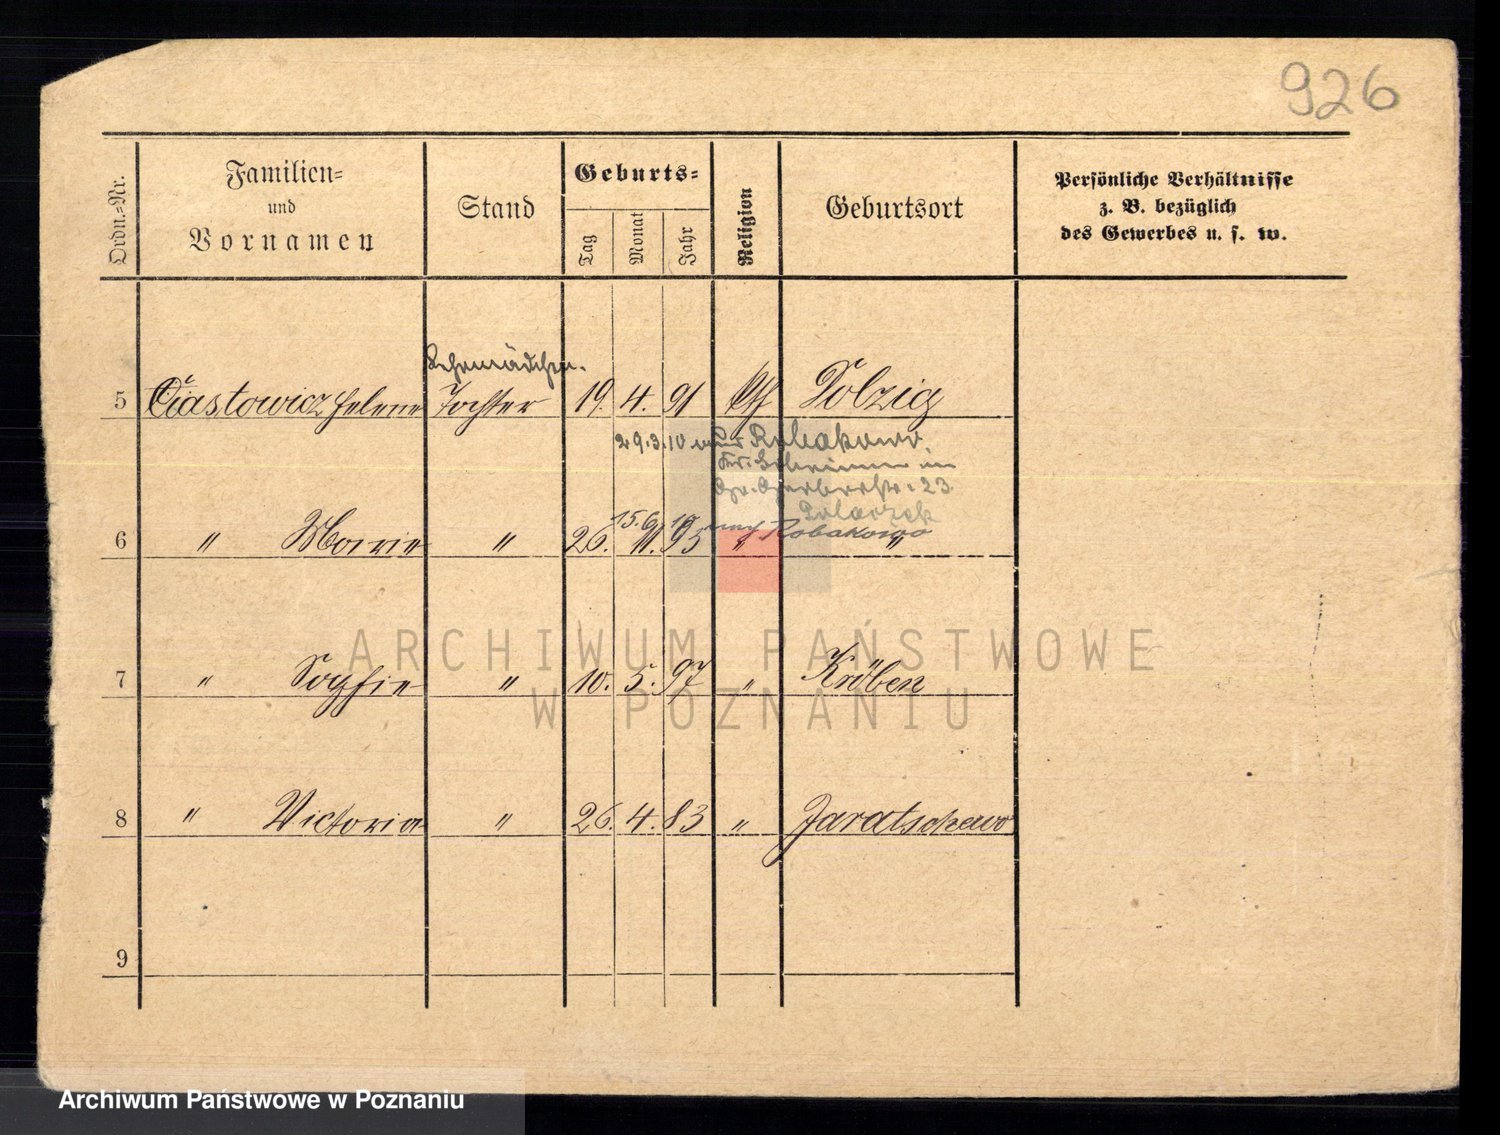 926
Ordn.-Nr.
Familien-
und
Vornamen
Stand
Geburts-
Tag
Monat
Jahr
Religion
Geburtsort
Persönliche Verhältnisse
z. B. bezüglich
des Gewerbes u. s. w.
Lehrmädchen.
5 Ciastowicz Helene Tochter 19. 4. 91 kth Polzig
29.3.10 Robakowo.
23.
15.6. 10 nach Robakowo
6 " Marie " 26. 11. 95 " "
7 " Sophie " 10. 5. 97 " Kröben
8 " Victoria " 26. 4. 83 " Jaratschewo
9
ARCHIWUM PAŃSTWOWE
W POZNANIU
Archiwum Państwowe w Poznaniu